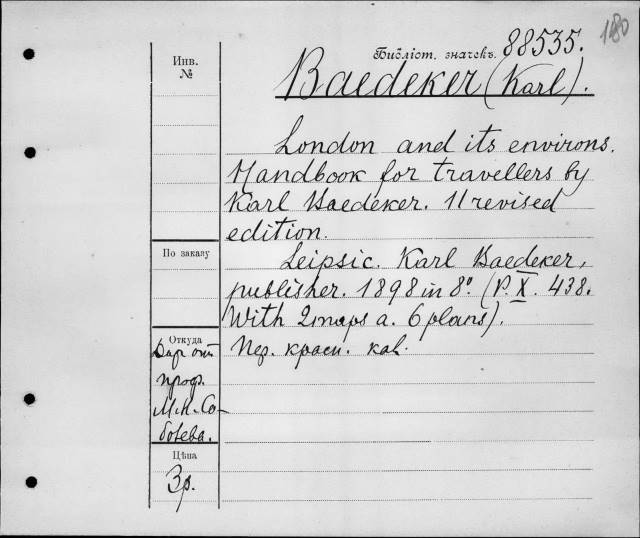 180
Библіот. значекъ. 88535.
Инв.
№
Baedeker (Karl).
London and its environs.
Handbook for travellers by
Karl Baedeker. 11 revised
edition.
По заказу
Leipsic. Karl Baedeker,
publisher. 1898 in 8°. (P. X. 438.
With 2 maps a. 6 plans).
Откуда
Пер. красн. кал.
Дар отъ
проф.
М.Н. Со-
болева.
Цѣна
3р.